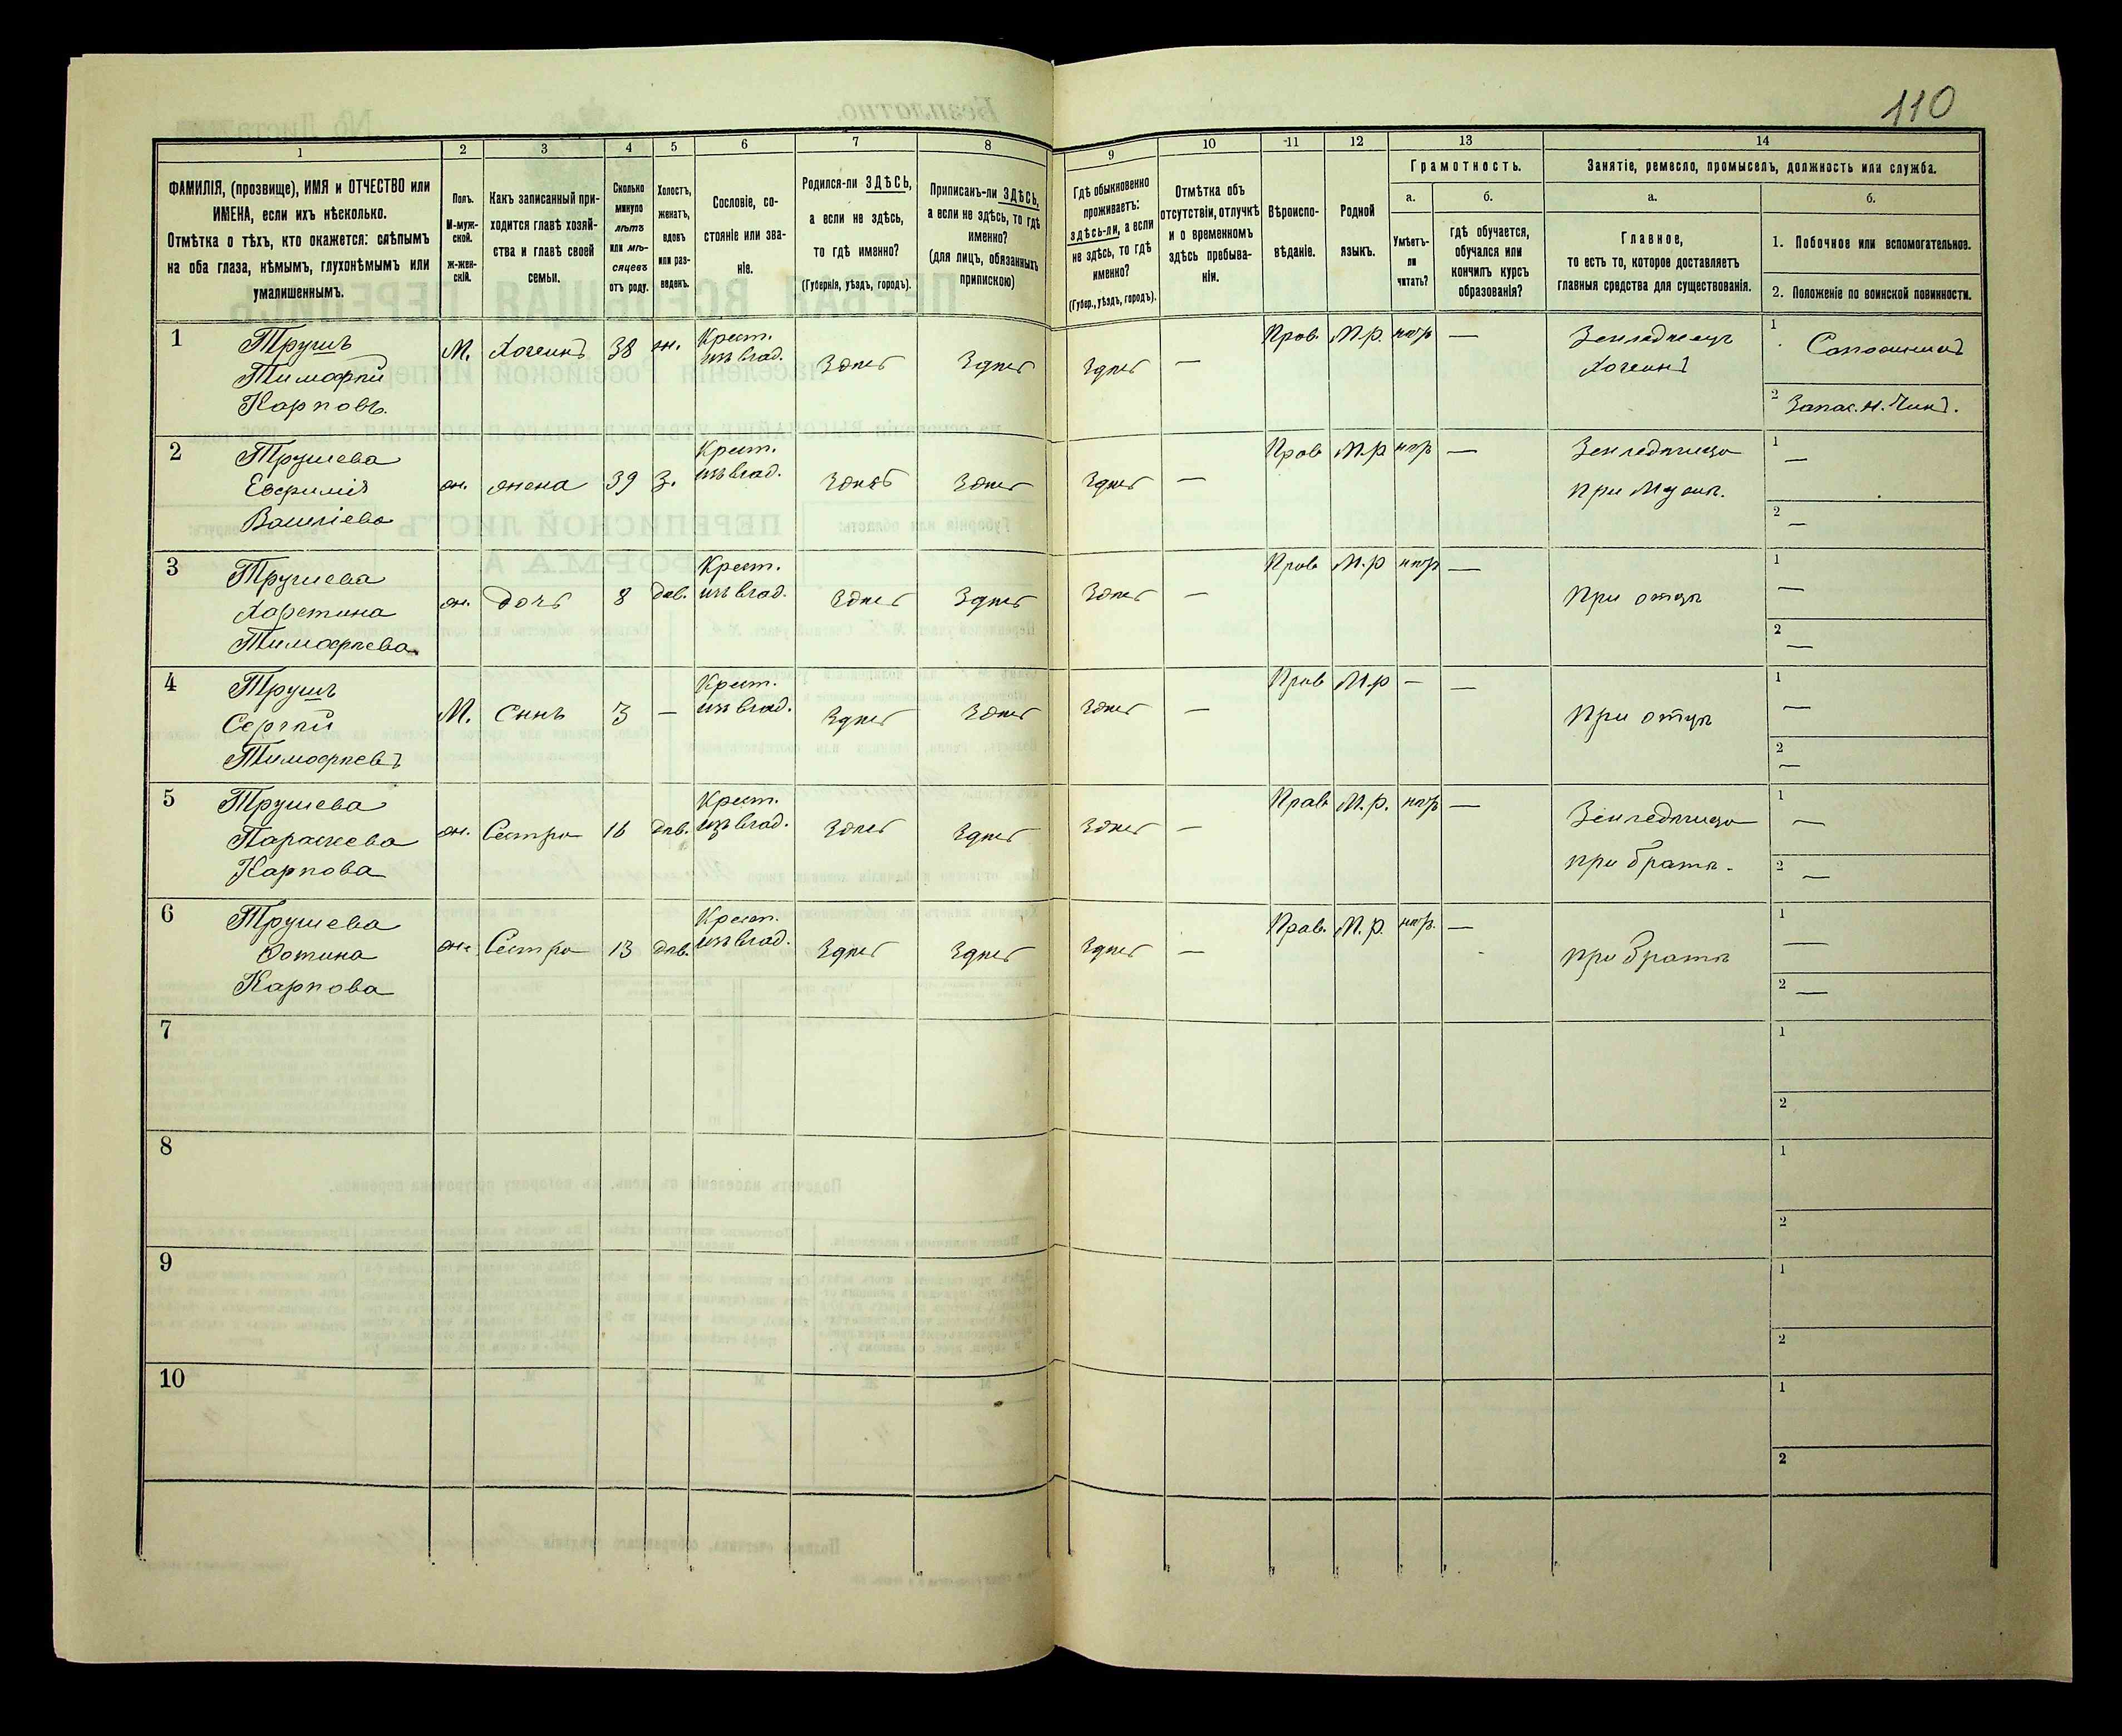 110
1
2
3
4
5
6
7
8
9
10
11
12
13
14
ФАМИЛІЯ, (прозвище), ИМЯ и ОТЧЕСТВО или
ИМЕНА, если ихъ нѣсколько.
Отмѣтка о тѣхъ, кто окажется: слѣпымъ
на оба глаза, нѣмымъ, глухонѣмымъ или
умалишеннымъ.
Полъ.
М-муж-
ской.
Ж-жен-
скій.
Какъ записанный при-
ходится главѣ хозяй-
ства и главѣ своей
семьи.
Сколько
минуло
лѣтъ
или мѣ-
сяцевъ
отъ роду.
Холостъ,
женатъ,
вдовъ
или раз-
веденъ.
Сословіе, со-
стояніе или зва-
ніе.
Родился-ли ЗДѢСЬ,
а если не здѣсь,
то гдѣ именно?
(Губернія, уѣздъ, городъ).
Приписанъ-ли ЗДѢСЬ,
а если не здѣсь, то гдѣ
именно?
(для лицъ, обязанныхъ
припискою)
Гдѣ обыкновенно
проживаетъ:
здѣсь-ли, а если
не здѣсь, то гдѣ
именно?
(Губер., уѣздъ, городъ).
Отмѣтка объ
отсутствіи, отлучкѣ
и о временномъ
здѣсь пребыва-
ніи.
Вѣроиспо-
вѣданіе.
Родной
языкъ.
Грамотность.
а.
Умѣетъ-
ли
читать?
б.
гдѣ обучается,
обучался или
кончилъ курсъ
образованія?
Занятіе, ремесло, промыселъ, должность или служба.
а.
Главное,
то есть то, которое доставляетъ
главныя средства для существованія.
б.
1. Побочное или вспомогательное.
2. Положеніе по воинской повинности.
1
Трушъ
Тимофѣй
Карповъ.
М.
Хозяинъ
38
ж.
Крест.
изъ влад.
Здѣсь
Здѣсь
Здѣсь
—
Прав.
М.р.
нѣтъ
—
Земледѣлецъ
Хозяинъ
1
Сапожникъ
2
Запас. н. Чинъ.
2
Трушева
Евфимія
ж.
жена
39
з.
Крест.
изъ влад.
Здѣсь
Здѣсь
Здѣсь
—
Прав
М.р
нѣтъ
—
Земледѣлица
при мужѣ.
1
—
2
—
3
Трушева
Харетина
Тимофѣева
ж.
дочь
8
дѣв.
Крест.
изъ влад.
Здѣсь
Здѣсь
Здѣсь
—
Прав
М.р
нѣтъ
—
При отцѣ
1
—
2
—
4
Трушъ
Сергѣй
Тимофѣевъ
М.
Сынъ
3
—
Крест.
изъ влад.
Здѣсь
Здѣсь
Здѣсь
—
Прав
М.р
—
—
При отцѣ
1
—
2
—
5
Трушева
Параскева
Карпова
ж.
Сестра
16
дѣв.
Крест.
изъ влад.
Здѣсь
Здѣсь
Здѣсь
—
Прав
М.р.
нѣтъ
—
Земледѣлица
при братѣ.
1
—
2
—
6
Трушева
Фотина
Карпова
ж.
Сестра
13
дѣв.
Крест.
изъ влад.
Здѣсь
Здѣсь
Здѣсь
—
Прав.
М.р.
нѣтъ.
—
при Братѣ
1
—
2
—
7
1
2
8
1
2
9
1
2
10
1
2